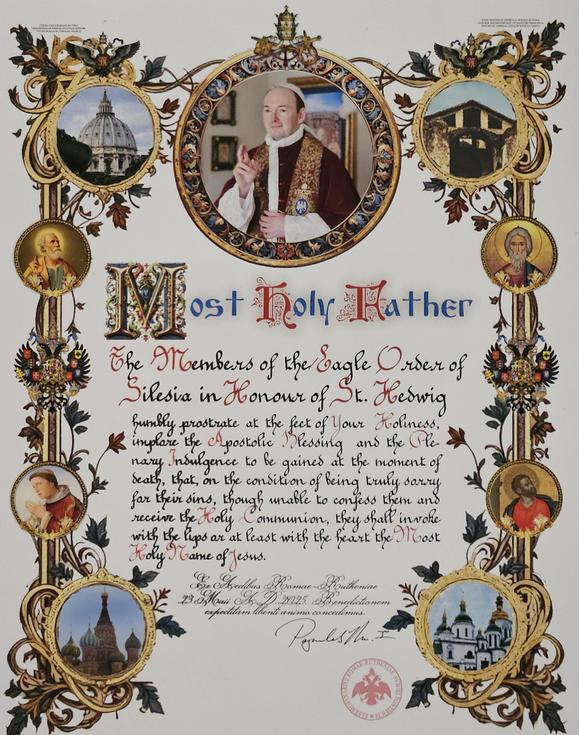 Most Holy Father
The Members of the Eagle Order of
Silesia in Honour of St. Hedwig
humbly prostrate at the feet of Your Holiness,
implore the Apostolic Blessing and the Ple-
nary Indulgence to be gained at the moment of
death, that, on the condition of being truly sorry
for their sins, though unable to confess them and
receive the Holy Communion, they shall invoke
with the lips or at least with the heart the Most
Holy Name of Jesus.
Ex Aedibus Romae-Rutheniae
23 Maii A.D. 2025. Benedictionem
expetitam libenti animo concedimus.